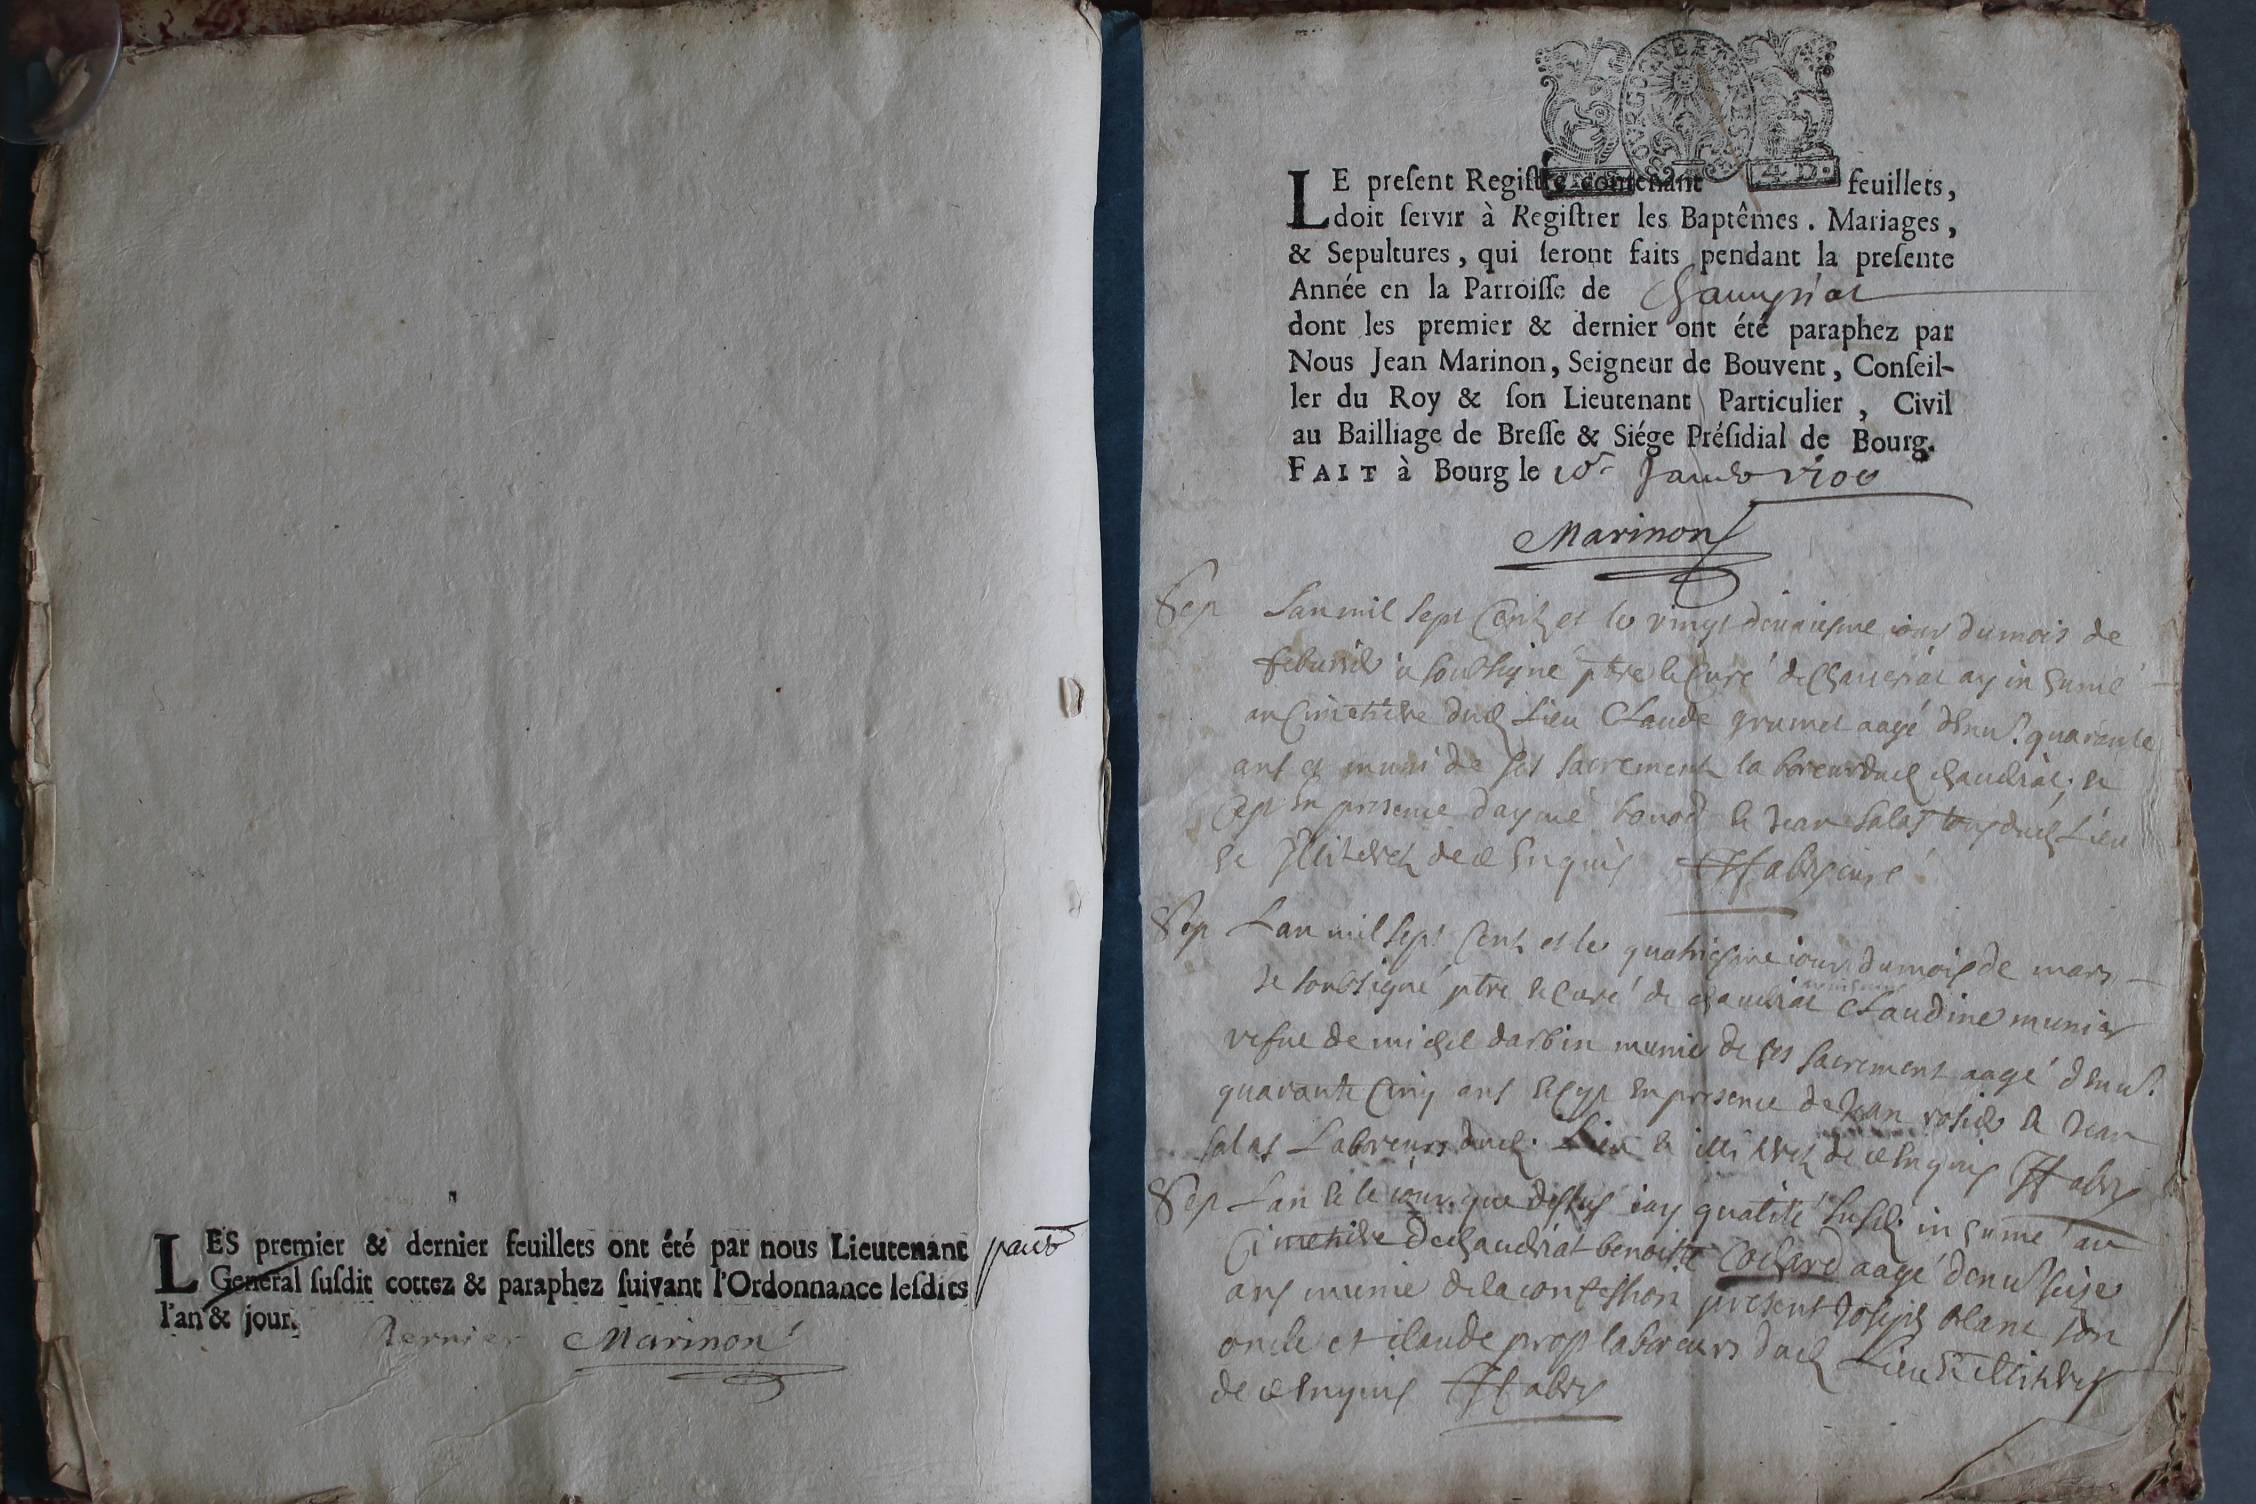 LES premier & dernier feuillets ont été par nous Lieutenant
General susdit cottez & paraphez suivant l'Ordonnance lesdits
l'an & jour.
dernier Marinon
4. D.
LE present Registre contenant feuillets,
doit servir à Registrer les Baptêmes. Mariages,
& Sepultures, qui seront faits pendant la presente
Année en la Parroisse de
dont les premier & dernier ont été paraphez par
Nous Jean Marinon, Seigneur de Bouvent, Conseil-
ler du Roy & son Lieutenant Particulier, Civil
au Bailliage de Bresse & Siége Présidial de Bourg.
FAIT à Bourg le
Marinon
Sep Lan mil sept Cent et le vingt deuxiesme iour du mois de
soubsigné ptre & Curé de ay inhumé
au Cimetiere dud Lieu Claude grumet aagé denv. quarante
ans et muni de ses sacrement laboreur dud
en presence daymé & Jean salas tous dud Lieu
& illiterez de ce enquis curé
Sep Lan mil sept Cent et le quatriesme iour du mois de mars
Je soubsigné ptre & Curé de Claudine munier
vefve de michel darbin munie de ses sacrement aagé denv.
quarante Cinq ans & en presence de Jean & Jean
salas Laboreurs dud. Lieu & illiterez de ce enquis
Sep Lan & le iour que dessus iay qualité susd. inhumé au
Cimetiere de benoiste Cochard aagé denv seise
ans munie de la confession present Joseph blanc son
oncle et claude prost laboreurs dud Lieu & illiterez
de ce enquis